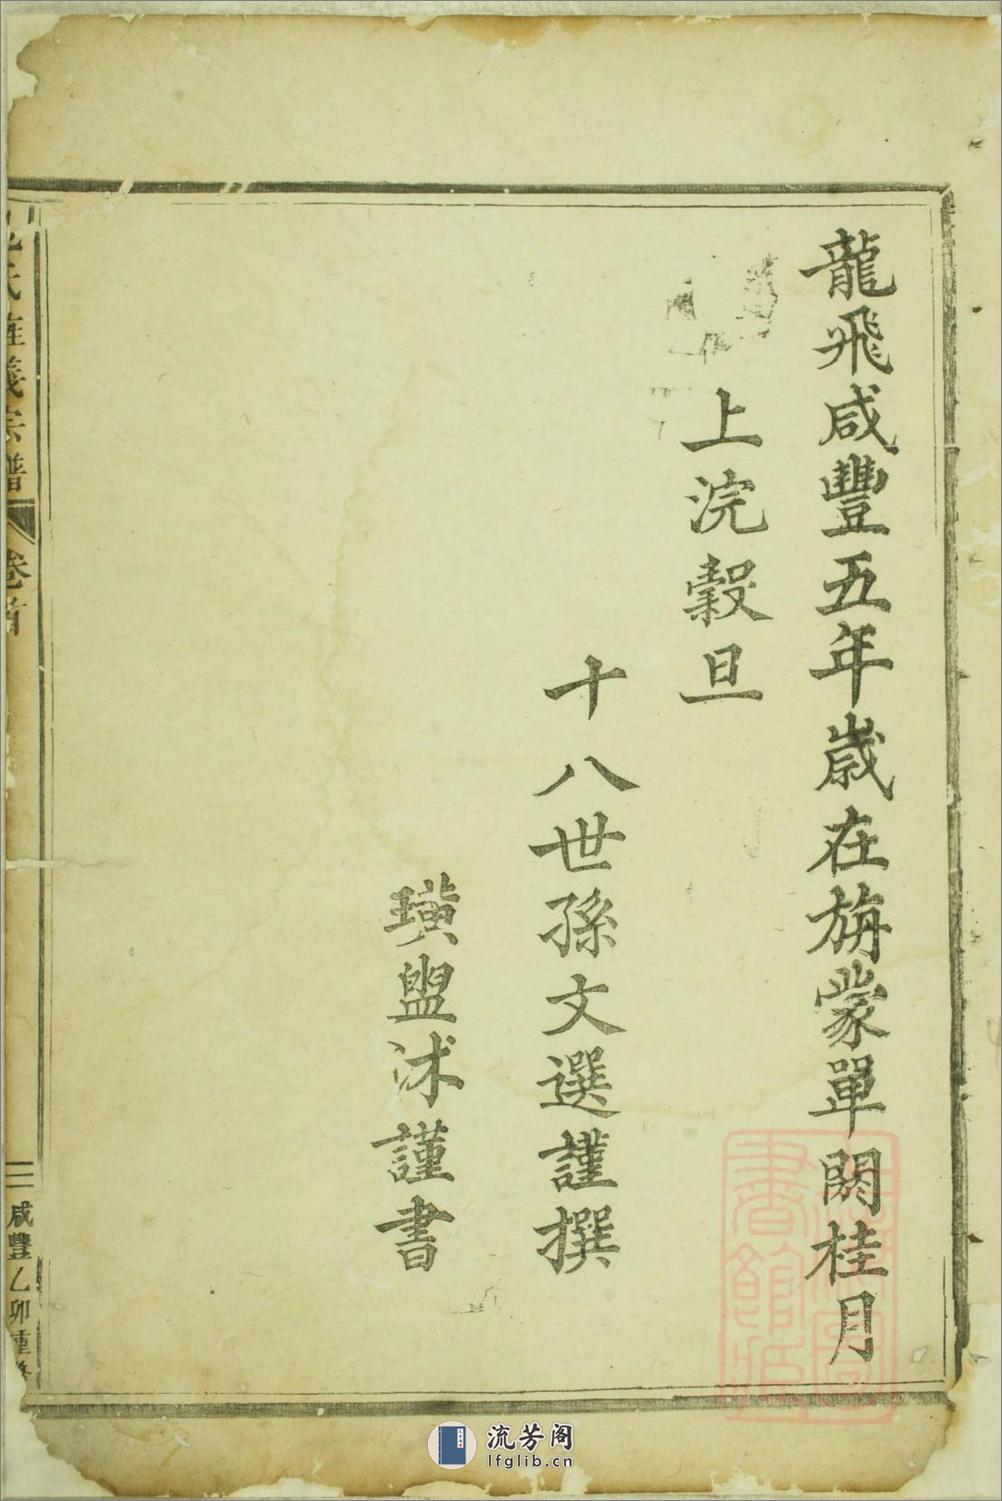 龍飛咸豐五年歲在旃蒙單閼桂月
上浣穀旦
十八世孫文選謹撰
璜盥沭謹書
氏 義宗譜
卷首
三
咸豐乙卯重修
書館
流芳阁
lfglib.cn